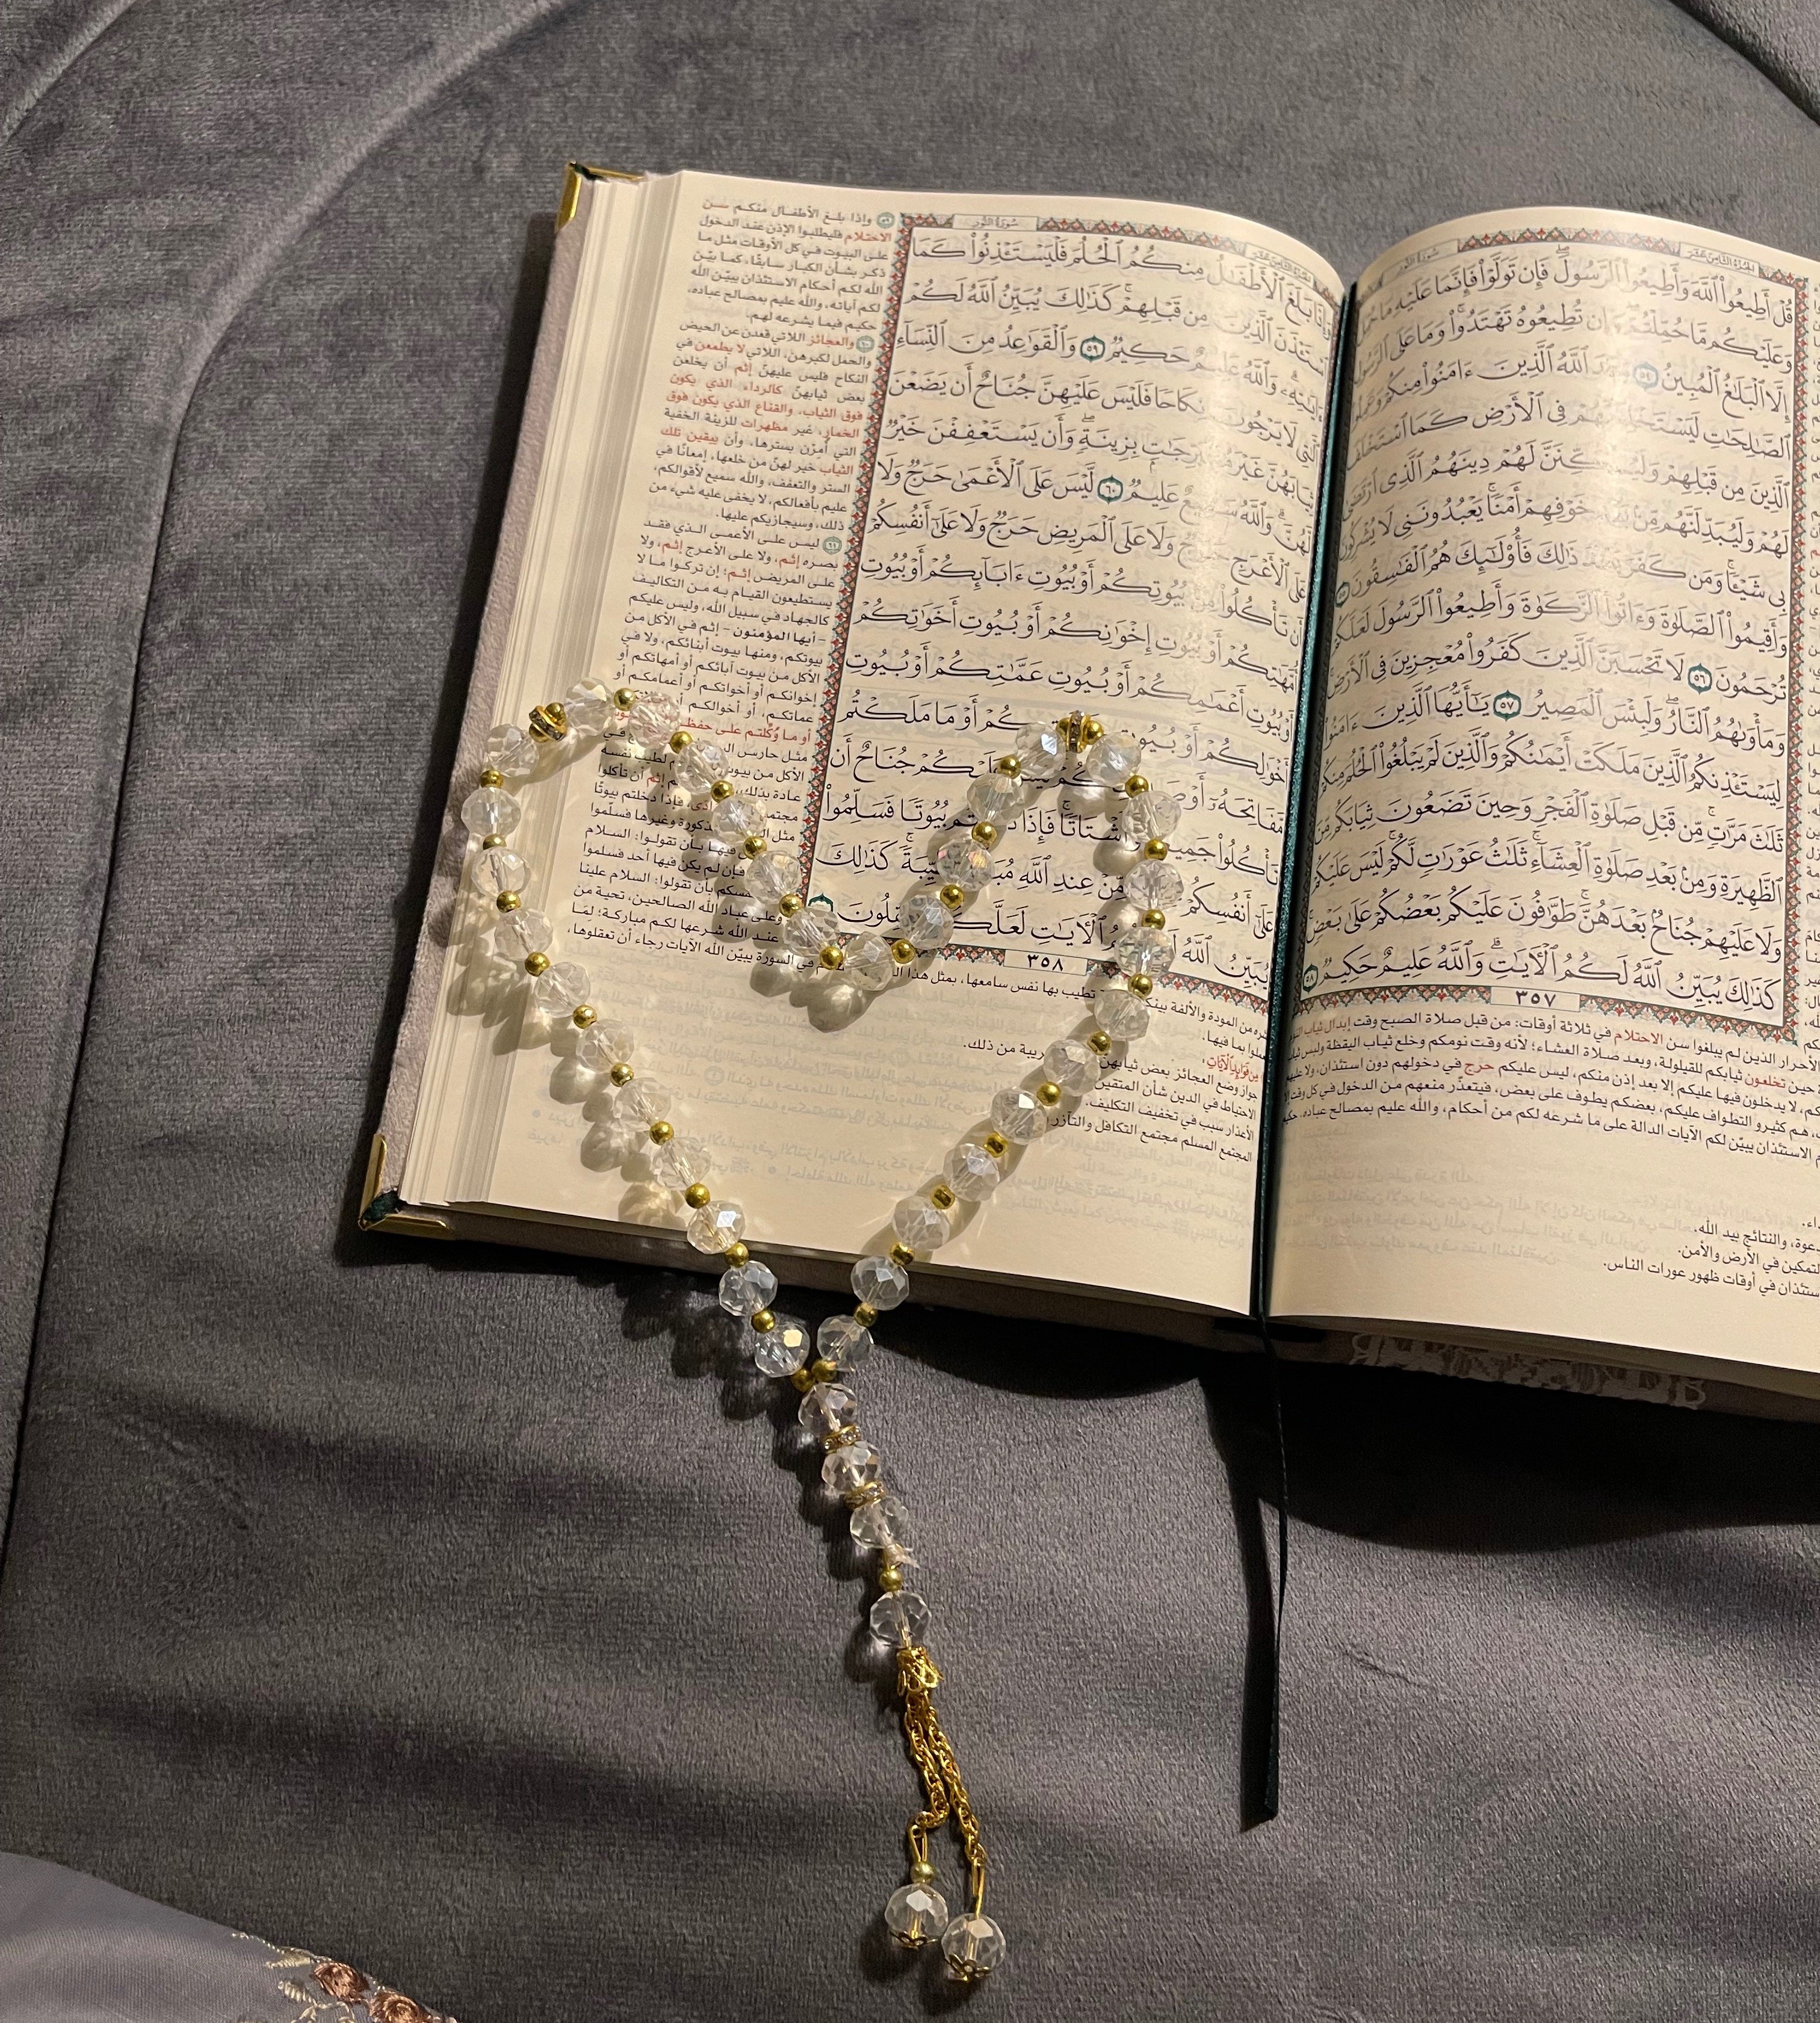 الجُزْءُ الثَّامِنَ عَشَرَ
سُورَةُ النُّورِ
قُلْ أَطِيعُوا۟ ٱللَّهَ وَأَطِيعُوا۟ ٱلرَّسُولَ ۖ فَإِن تَوَلَّوْا۟ فَإِنَّمَا عَلَيْهِ مَا حُمِّلَ
وَعَلَيْكُم مَّا حُمِّلْتُمْ ۖ وَإِن تُطِيعُوهُ تَهْتَدُوا۟ ۚ وَمَا عَلَى ٱلرَّسُولِ
إِلَّا ٱلْبَلَٰغُ ٱلْمُبِينُ ٥٤ وَعَدَ ٱللَّهُ ٱلَّذِينَ ءَامَنُوا۟ مِنكُمْ وَعَمِلُوا۟
ٱلصَّٰلِحَٰتِ لَيَسْتَخْلِفَنَّهُمْ فِى ٱلْأَرْضِ كَمَا ٱسْتَخْلَفَ
ٱلَّذِينَ مِن قَبْلِهِمْ وَلَيُمَكِّنَنَّ لَهُمْ دِينَهُمُ ٱلَّذِى ٱرْتَضَىٰ
لَهُمْ وَلَيُبَدِّلَنَّهُم مِّنۢ بَعْدِ خَوْفِهِمْ أَمْنًا ۚ يَعْبُدُونَنِى لَا يُشْرِكُونَ
بِى شَيْـًٔا ۚ وَمَن كَفَرَ بَعْدَ ذَٰلِكَ فَأُو۟لَٰٓئِكَ هُمُ ٱلْفَٰسِقُونَ ٥٥
وَأَقِيمُوا۟ ٱلصَّلَوٰةَ وَءَاتُوا۟ ٱلزَّكَوٰةَ وَأَطِيعُوا۟ ٱلرَّسُولَ لَعَلَّكُمْ
تُرْحَمُونَ ٥٦ لَا تَحْسَبَنَّ ٱلَّذِينَ كَفَرُوا۟ مُعْجِزِينَ فِى ٱلْأَرْضِ ۚ
وَمَأْوَىٰهُمُ ٱلنَّارُ ۖ وَلَبِئْسَ ٱلْمَصِيرُ ٥٧ يَٰٓأَيُّهَا ٱلَّذِينَ ءَامَنُوا۟
لِيَسْتَـْٔذِنكُمُ ٱلَّذِينَ مَلَكَتْ أَيْمَٰنُكُمْ وَٱلَّذِينَ لَمْ يَبْلُغُوا۟ ٱلْحُلُمَ مِنكُمْ
ثَلَٰثَ مَرَّٰتٍ ۚ مِّن قَبْلِ صَلَوٰةِ ٱلْفَجْرِ وَحِينَ تَضَعُونَ ثِيَابَكُم مِّنَ
ٱلظَّهِيرَةِ وَمِنۢ بَعْدِ صَلَوٰةِ ٱلْعِشَآءِ ۚ ثَلَٰثُ عَوْرَٰتٍ لَّكُمْ ۚ لَيْسَ عَلَيْكُمْ
وَلَا عَلَيْهِمْ جُنَاحٌۢ بَعْدَهُنَّ ۚ طَوَّٰفُونَ عَلَيْكُم بَعْضُكُمْ عَلَىٰ بَعْضٍ ۚ
كَذَٰلِكَ يُبَيِّنُ ٱللَّهُ لَكُمُ ٱلْءَايَٰتِ ۗ وَٱللَّهُ عَلِيمٌ حَكِيمٌ ٥٨
٣٥٧
الأحرار الذين لم يبلغوا سن الاحتلام في ثلاثة أوقات: من قبل صلاة الصبح وقت إبدال ثياب
حين تخلعون ثيابكم للقيلولة، وبعد صلاة العشاء؛ لأنه وقت نومكم وخلع ثياب اليقظة ولبس
لا يدخلون فيها عليكم إلا بعد إذن منكم، ليس عليكم حرج في دخولهم دون استئذان، ولا عليهم
هم كثيرو التطواف عليكم، بعضكم يطوف على بعض، فيتعذّر منعهم من الدخول في كل وقت إلا
الاستئذان يبيّن لكم الآيات الدالة على ما شرعه لكم من أحكام، والله عليم بمصالح عباده،
والنتائج بيد الله.
التمكين في الأرض والأمن.
في أوقات ظهور عورات الناس.
الجُزْءُ الثَّامِنَ عَشَرَ
سُورَةُ النُّورِ
وَإِذَا بَلَغَ ٱلْأَطْفَٰلُ مِنكُمُ ٱلْحُلُمَ فَلْيَسْتَـْٔذِنُوا۟ كَمَا
ٱسْتَـْٔذَنَ ٱلَّذِينَ مِن قَبْلِهِمْ ۚ كَذَٰلِكَ يُبَيِّنُ ٱللَّهُ لَكُمْ
ءَايَٰتِهِۦ ۗ وَٱللَّهُ عَلِيمٌ حَكِيمٌ ٥٩ وَٱلْقَوَٰعِدُ مِنَ ٱلنِّسَآءِ
ٱلَّٰتِى لَا يَرْجُونَ نِكَاحًا فَلَيْسَ عَلَيْهِنَّ جُنَاحٌ أَن يَضَعْنَ
ثِيَابَهُنَّ غَيْرَ مُتَبَرِّجَٰتٍۭ بِزِينَةٍ ۖ وَأَن يَسْتَعْفِفْنَ خَيْرٌ
لَّهُنَّ ۗ وَٱللَّهُ سَمِيعٌ عَلِيمٌ ٦٠ لَّيْسَ عَلَى ٱلْأَعْمَىٰ حَرَجٌ وَلَا
عَلَى ٱلْأَعْرَجِ حَرَجٌ وَلَا عَلَى ٱلْمَرِيضِ حَرَجٌ وَلَا عَلَىٰٓ أَنفُسِكُمْ
أَن تَأْكُلُوا۟ مِنۢ بُيُوتِكُمْ أَوْ بُيُوتِ ءَابَآئِكُمْ أَوْ بُيُوتِ
أُمَّهَٰتِكُمْ أَوْ بُيُوتِ إِخْوَٰنِكُمْ أَوْ بُيُوتِ أَخَوَٰتِكُمْ
أَوْ بُيُوتِ أَعْمَٰمِكُمْ أَوْ بُيُوتِ عَمَّٰتِكُمْ أَوْ بُيُوتِ
أَخْوَٰلِكُمْ أَوْ بُيُوتِ أَوْ مَا مَلَكْتُم
مَّفَاتِحَهُۥٓ جُنَاحٌ أَن
تَأْكُلُوا۟ جَمِيعًا أَشْتَاتًا ۚ فَإِذَا بُيُوتًا فَسَلِّمُوا۟
عَلَىٰٓ أَنفُسِكُمْ مِّنْ عِندِ ٱللَّهِ طَيِّبَةً ۚ كَذَٰلِكَ
يُبَيِّنُ ٱللَّهُ ٱلْءَايَٰتِ لَعَلَّكُمْ
٣٥٨
٥٩ وإذا بلغ الأطفال منكم سن
الاحتلام فليطلبوا الإذن عند الدخول
على البيوت في كل الأوقات مثل ما
ذكر بشأن الكبار سابقًا، كما بيّن
الله لكم أحكام الاستئذان يبيّن الله
لكم آياته، والله عليم بمصالح عباده،
حكيم فيما يشرعه لهم.
٦٠ والعجائز اللاتي قعدن عن الحيض
والحمل لكبرهن، اللاتي لا يطمعن في
النكاح فليس عليهنّ إثم أن يخلعن
بعض ثيابهنّ كالرداء الذي يكون
فوق الثياب، والقناع الذي يكون فوق
الخمار، غير مظهرات للزينة الخفية
التي أمرن بسترها، وأن يبقين تلك
الثياب خير لهن من خلعها، إمعانًا في
الستر والتعفف، والله سميع لأقوالكم،
عليم بأفعالكم، لا يخفى عليه شيء من
ذلك، وسيجازيكم عليها.
٦١ ليس على الأعمى الذي فقد
بصره إثم، ولا على الأعرج إثم، ولا
على المريض إثم؛ إن تركوا ما لا
يستطيعون القيام به من التكاليف
كالجهاد في سبيل الله، وليس عليكم
– أيها المؤمنون – إثم في الأكل من
بيوتكم، ومنها بيوت أبنائكم، ولا في
الأكل من بيوت آبائكم أو أمهاتكم أو
إخوانكم أو أخواتكم أو أعمامكم أو
عماتكم، أو أخوالكم أو
أو ما وُكِّلتم على حفظه
مثل حارس
الأكل من بيوت لطيب نفسه
عادة بذلك، إثم أن تأكلوا
فإذا دخلتم بيوتًا
المذكورة وغيرها فسلّموا
فيها بأن تقولوا: السلام
فإن لم يكن فيها أحد فسلموا
أنفسكم بأن تقولوا: السلام علينا
وعلى عباد الله الصالحين، تحية من
عند الله شرعها لكم مباركة؛ لما
من المودة والألفة بينكم تطيب بها نفس سامعها، بمثل هذا في السورة يبيّن الله الآيات رجاء أن تعقلوها،
بما فيها.
من ذلك.
مِن فَوَائِدِ الآيَاتِ
جواز وضع العجائز بعض ثيابهن
الاحتياط في الدين شأن المتقين
الأعذار سبب في تخفيف التكليف.
المجتمع المسلم مجتمع التكافل والتآزر